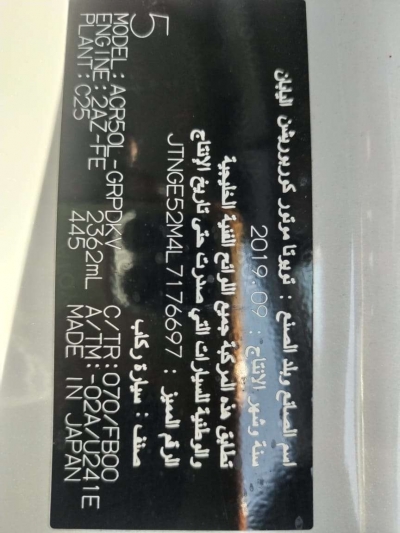 اسم الصانع وبلد الصنع : تويوتا موتور كوربوريشن اليابان
سنة وشهر الإنتاج : 2019.09
تطابق هذه المركبة جميع اللوائح الفنية الخليجية
والوطنية للسيارات التي صدرت حتى تاريخ الإنتاج
الرقم المميز : JTNGE52M4L7176697
صنف : سيارة ركاب
5
MODEL:ACR50L-GRPDKV C/TR:070/FB00
ENGINE:2AZ-FE 2362mL A/TM:-02A/U241E
PLANT:C25 445 MADE IN JAPAN